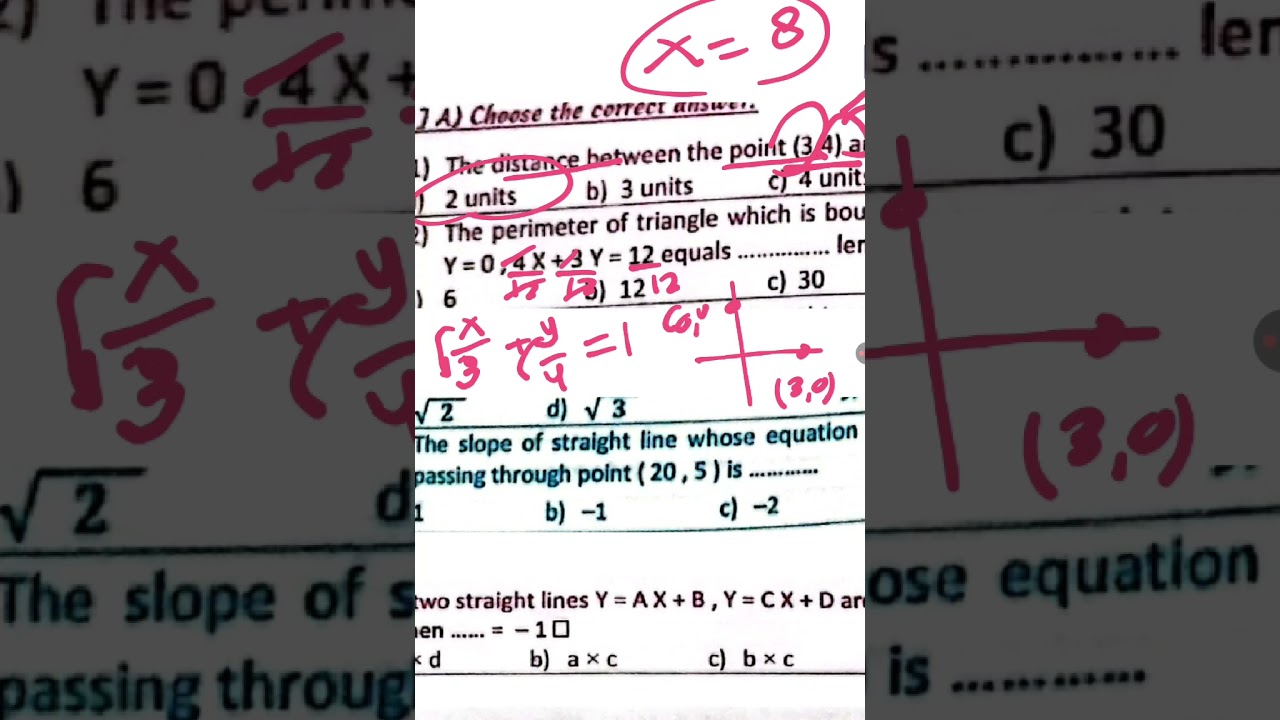 x = 8
] A) Choose the correct answer.
1) The distance between the point (3,4) a
) 2 units b) 3 units c) 4 unit
2) The perimeter of triangle which is bou
Y = 0 , 4 X + 3 Y = 12 equals ............... ler
12 12 12
) 6 b) 12 c) 30
x/3 + y/4 = 1
(3,0)
√2 d) √3
The slope of straight line whose equation
passing through point ( 20 , 5 ) is ...........
1 b) –1 c) –2
two straight lines Y = A X + B , Y = C X + D are
en ...... = – 1 □
× d b) a × c c) b × c